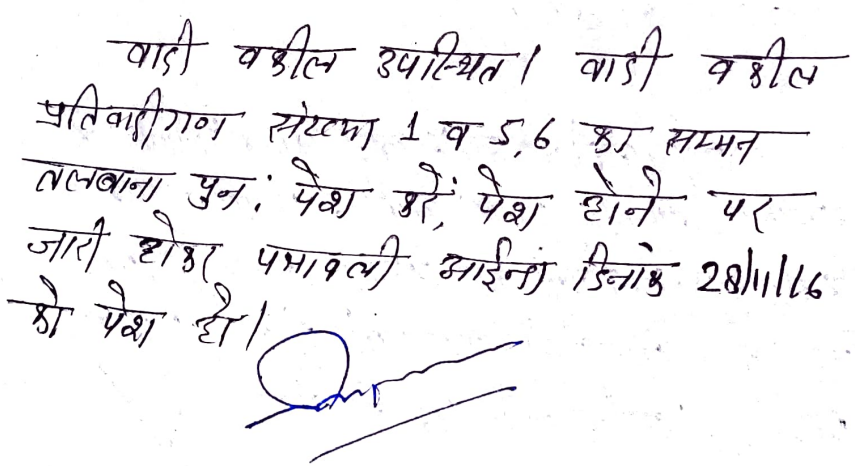 वादी वकील उपस्थित। वादी वकील
प्रतिवादीगण संख्या 1 व 5,6 का सम्मन
तलबाना पुन: पेश करें, पेश होने पर
जारी होकर पत्रावली आईन्दा दिनांक 28/11/16
को पेश हो।